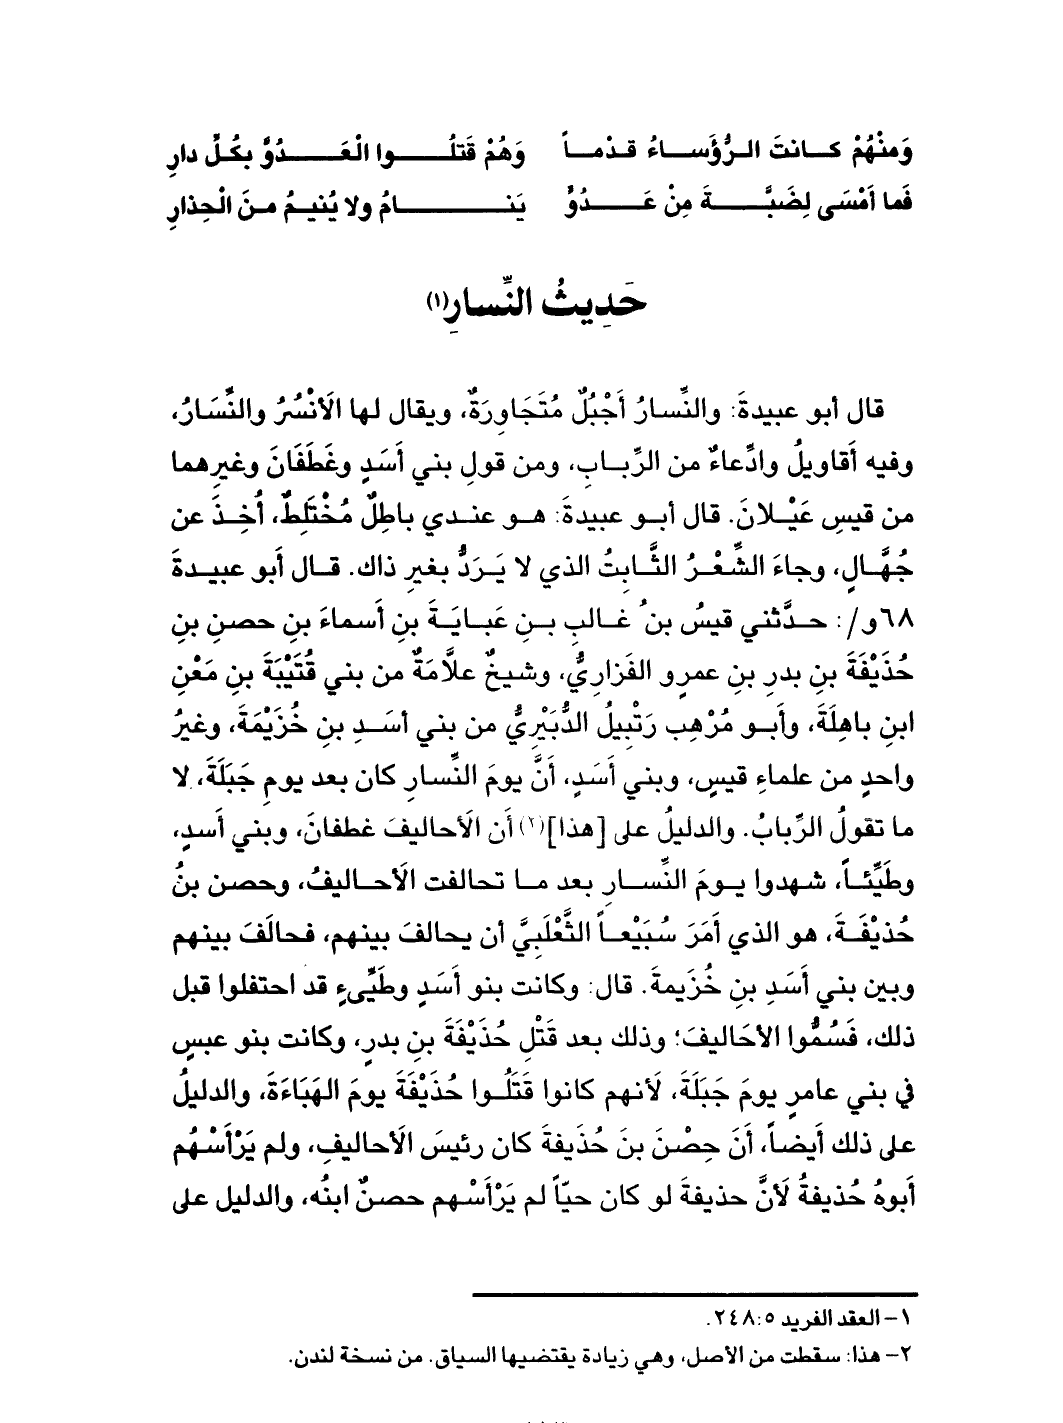 وَمِنْهُمْ كانتَ الرُّؤَساءُ قدْماً وَهُمْ قَتلُوا الْعَدُوَّ بكُلِّ دارِ
فَما أَمْسَى لِضَبَّةَ مِنْ عَدُوٍّ يَنامُ ولا يُنيمُ منَ الْحِذارِ
حَدِيثُ النِّسارِ(١)
قال أبو عبيدةَ: والنِّسارُ أَجْبُلٌ مُتَجَاوِرَةٌ، ويقال لها الأَنْسُرُ والنِّسَارُ،
وفيه أَقاويلُ وادِّعاءٌ من الرِّبابِ، ومن قولِ بني أَسَدٍ وغَطَفَانَ وغيرِهما
من قيسِ عَيْلانَ. قال أبو عبيدةَ: هو عندي باطِلٌ مُخْتَلِطٌ، أُخِذَ عن
جُهَّالٍ، وجاءَ الشِّعْرُ الثَّابتُ الذي لا يَرَدُّ بغيرِ ذاك. قال أَبو عبيدةَ
٦٨و/: حدَّثني قيسُ بنُ غالبِ بنِ عَبايَةَ بنِ أَسماءَ بنِ حصنِ بنِ
حُذَيْفَةَ بنِ بدرِ بنِ عمرو الفَزاريُّ، وشيخٌ علاَّمَةٌ من بني قُتَيْبَةَ بنِ مَعْنِ
ابنِ باهِلَةَ، وأَبو مُرْهِب رَتْبيلُ الدُّبَيْرِيُّ من بني أسَدِ بنِ خُزَيْمَةَ، وغيرُ
واحدٍ من علماءِ قيسٍ، وبني أَسَدٍ، أَنَّ يومَ النِّسارِ كان بعد يومِ جَبَلَةَ، لا
ما تقولُ الرِّبابُ. والدليلُ على [هذا](٢) أَن الأَحاليفَ غطفانَ، وبني أَسدٍ،
وطَيِّئاً، شهدوا يومَ النِّسارِ بعد ما تحالفت الأَحاليفُ، وحصن بنُ
حُذيْفَةَ، هو الذي أَمَرَ سُبَيْعاً الثَّعْلَبِيَّ أن يحالفَ بينهم، فحالَفَ بينهم
وبين بني أَسَدِ بنِ خُزَيمةَ. قال: وكانت بنو أَسَدٍ وطَيِّيءٍ قد احتفلوا قبل
ذلك، فَسُمُّوا الأحَاليفَ؛ وذلك بعد قَتْلِ حُذَيْفَةَ بنِ بدرٍ، وكانت بنو عبسٍ
في بني عامرٍ يومَ جَبَلَةَ، لأَنهم كانوا قَتَلُوا حُذَيْفَةَ يومَ الهَبَاءَةِ، والدليلُ
على ذلك أَيضاً، أَنَ حِصْنَ بنَ حُذَيفةَ كان رئيسَ الأَحاليفِ، ولم يَرْأَسْهُم
أَبوهُ حُذيفةُ لأَنَّ حذيفةَ لو كان حيّاً لم يَرْأَسْهم حصنٌ ابنُه، والدليل على
١- العقد الفريد ٢٤٨:٥.
٢- هذا: سقطت من الأصل، وهي زيادة يقتضيها السياق. من نسخة لندن.